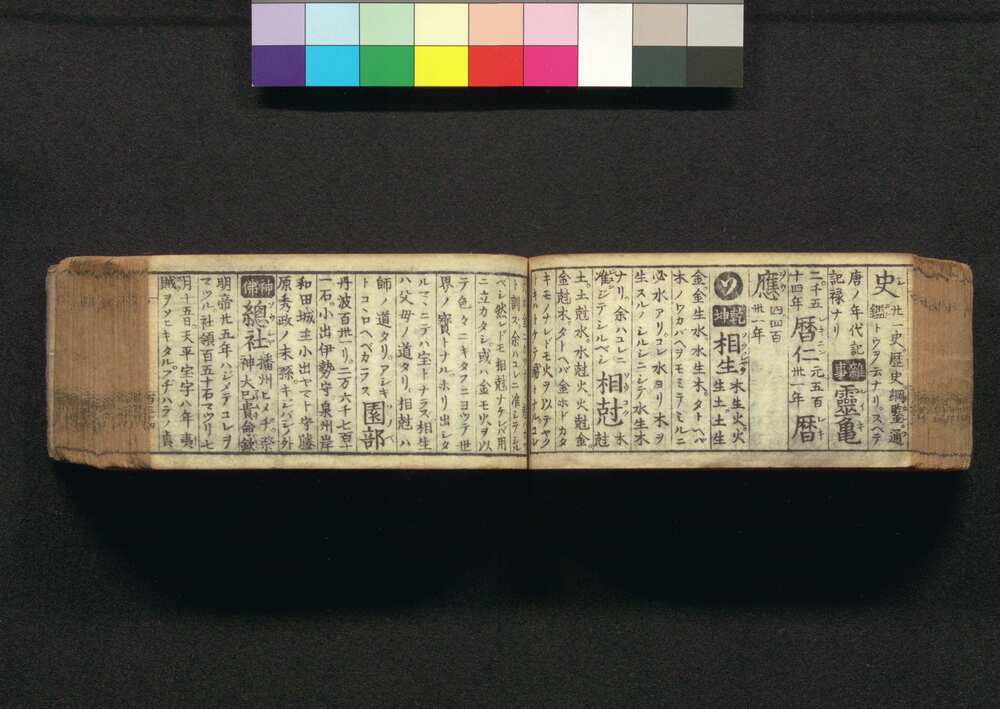 史 廿一史歴史綱鑒通
鑑トウヲ云ナリ。スベテ
唐ノ年代記
記禄ナリ 雜事 靈亀
二千五
十四年 暦仁 元五百卅一年 暦
應 四四百卅一年
ソ 乾坤 相生 木生火火
生土土生
金金生水水生木。タトヘバ
木ノワカバヘヲモミテミルニ
必水アリコレ水ヨリ木ヲ
生スルノシルシニシテ水生木
ナリ余ハコレニ
准シテシルベシ 相尅 木尅
土土尅水水尅火火尅金
金尅木タトヘバ金ホドカタ
キモノナレドモ火ヲ以テヤク
ベシ然レドモ相尅ナケレバ用
ニ立カタシ或ハ金モ火ヲ以
テ色々ニキタフニヨウテ世
界ノ寳トナルホリ出シタ
ルマヽニテハ宝トナラス相生
ハ父母ノ道タリ。相尅ハ
師ノ道タリアシキ
トコヽロヘベカラス 園部
丹波百卅一リ。二万六千七百十
一石。小出伊勢守泉州岸
和田城主小出ヤマト守藤
原秀政ノ末孫キシバシ外
神佛 總社 播州ヒメヂ祭
神大己貴命欽
明帝廿五年ハジメテコレヲ
マツル社領百五十石マツリ七
月十五日天平宝字八年夷
賊ヲソヒキタルアヂハラノ貞